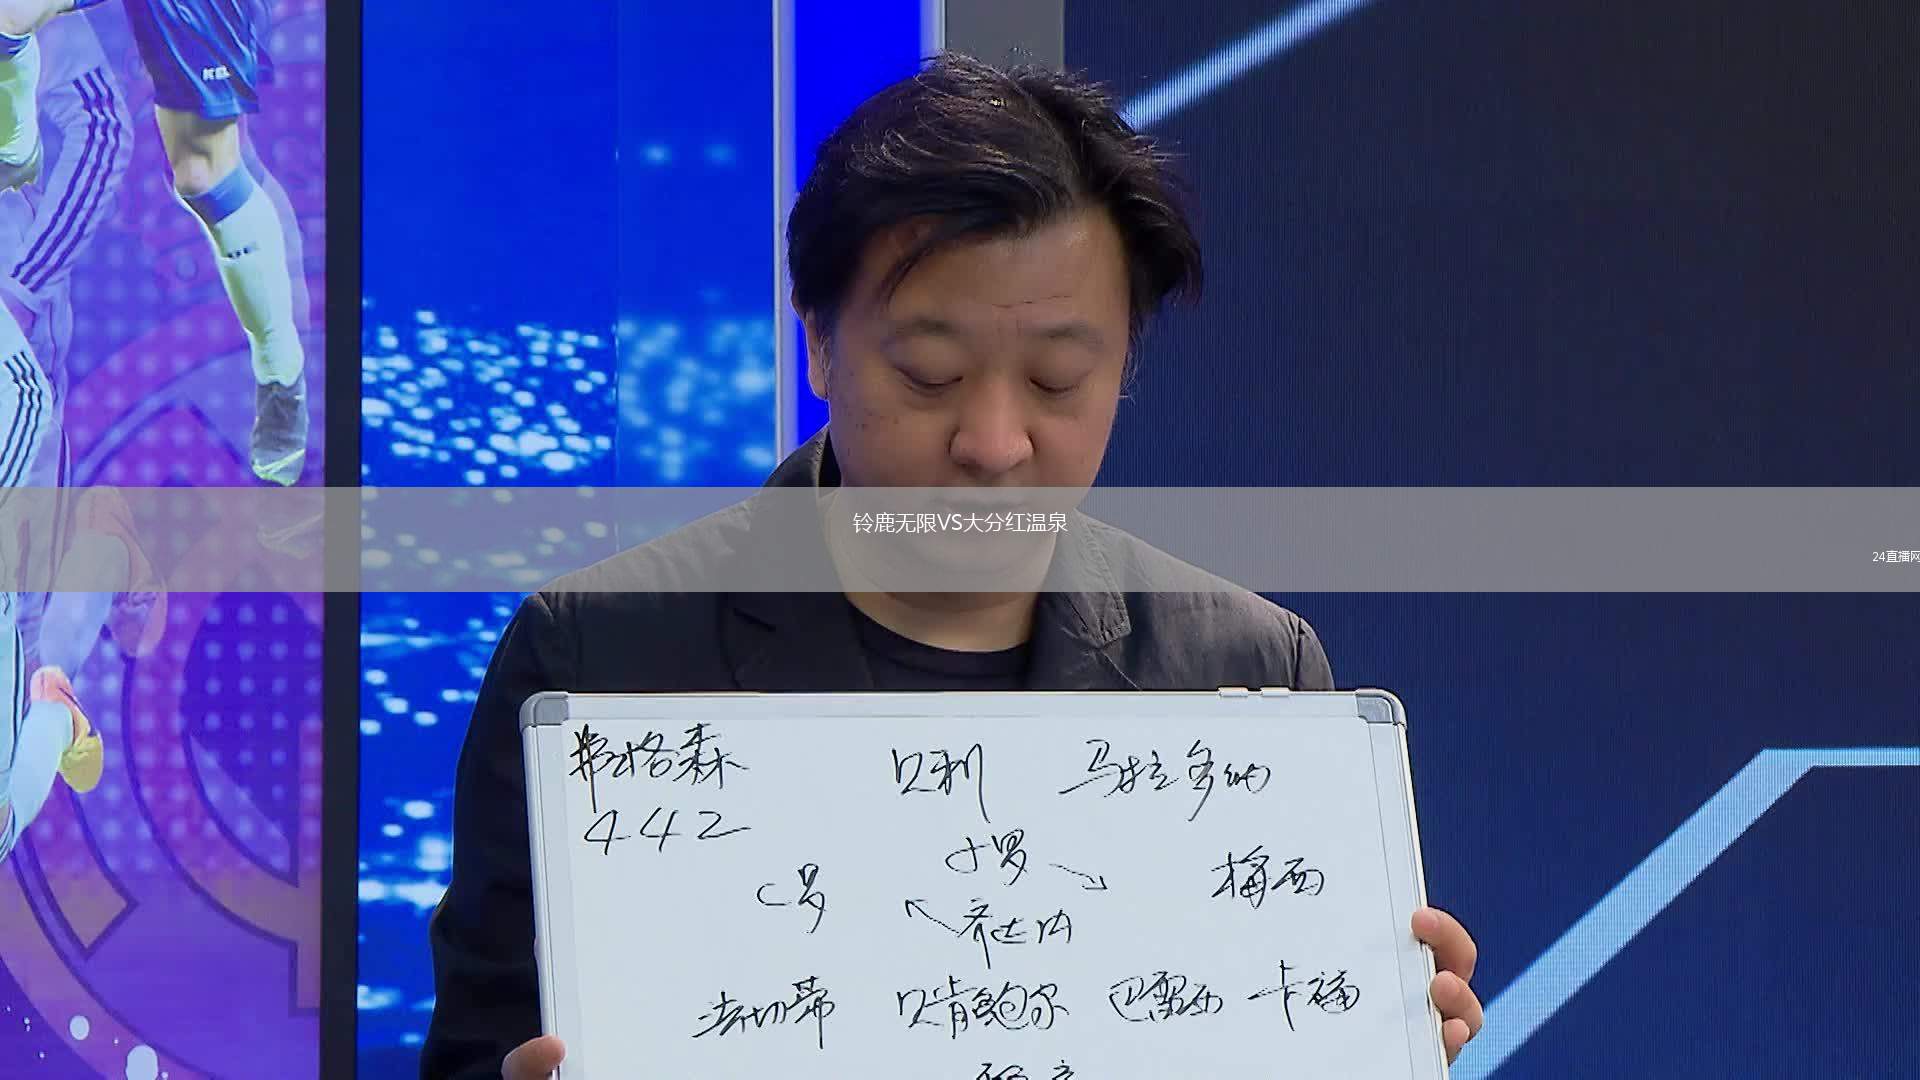 铃鹿无限VS大分红温泉
24直播网
弗格森 贝利 马拉多纳
442
小罗
C罗 梅西
齐达内
法切蒂 贝肯鲍尔 巴雷西 卡福